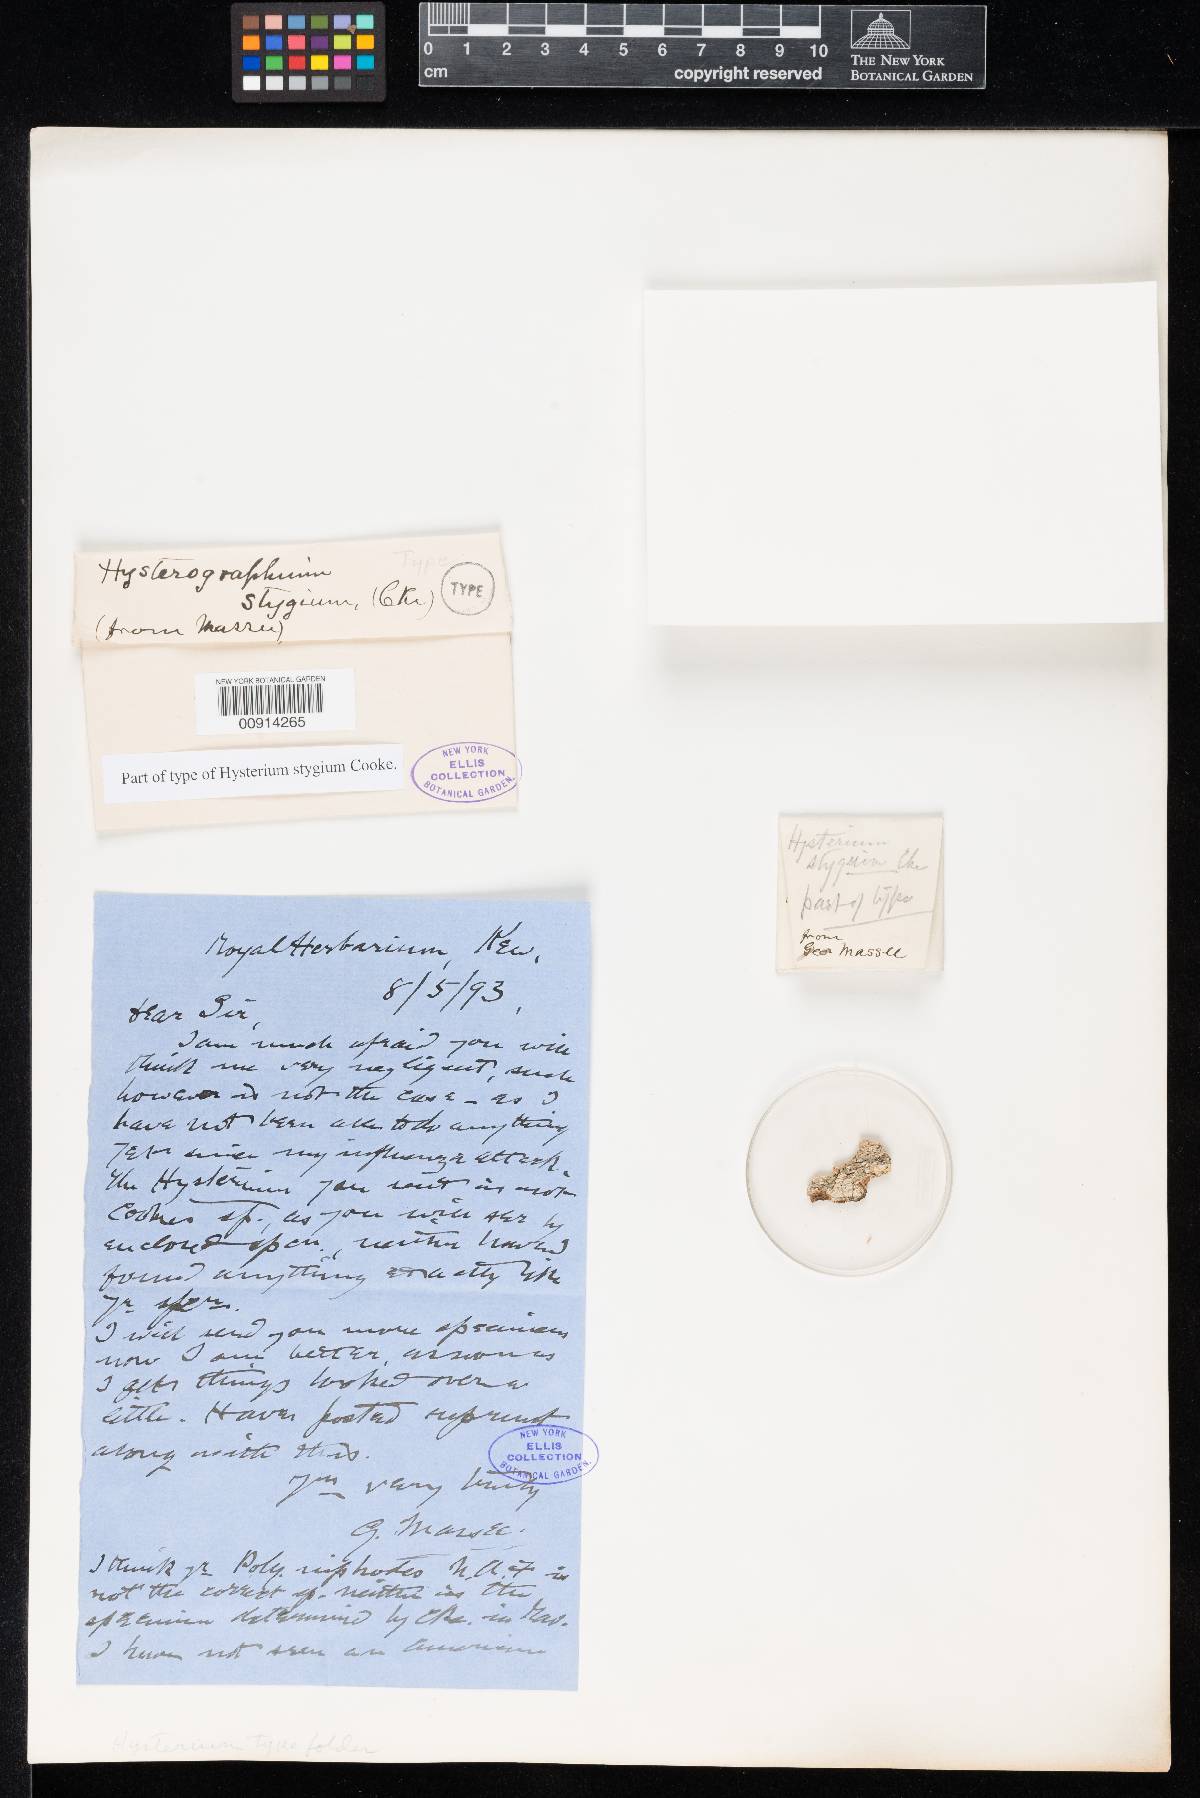 0 1 2 3 4 5 6 7 8 9 10
cm
copyright reserved
THE NEW YORK
BOTANICAL GARDEN
Type
Hysterographium
stygium, (Cke)
TYPE
(from Massee)
NEW YORK BOTANICAL GARDEN
00914265
Part of type of Hysterium stygium Cooke.
NEW YORK
ELLIS
COLLECTION
BOTANICAL GARDEN.
Hysterium
stygium Cke
part of type
from
Geo Massee
Royal Herbarium, Kew,
8/5/93,
Dear Sir,
I am much afraid you will
think me very negligent, such
however is not the case - as I
have not been able to do anything
yet since my influenza attack.
The Hysterium you sent is not
Cookes sp., as you will see by
enclosed spcn., neither have I
found anything exactly like
yr spcn.
I will send you more specimens
now I am better, as soon as
I get things looked over a
little. Have posted reprint
along with this.
Yrs very truly
G. Massee.
NEW YORK
ELLIS
COLLECTION
BOTANICAL GARDEN.
I think yr Poly. niphodes N.A.F. is
not the correct sp. neither is the
specimen determined by Cke. in Rav.
I have not seen an American
Hysterium type folder